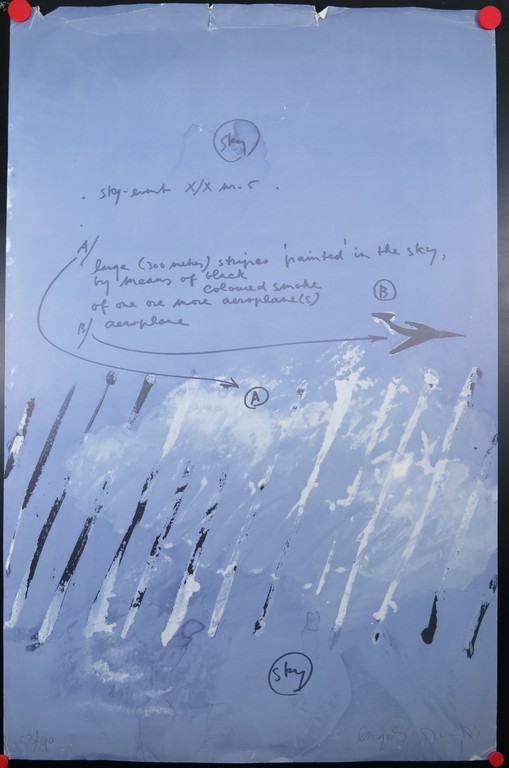 sky
. sky-event X/X nr. 5 .
A/
large (300 meters) stripes 'painted' in the sky,
by means of black
coloured smoke
of one ore more aeroplane(s)
B/ aeroplane
B
A
sky